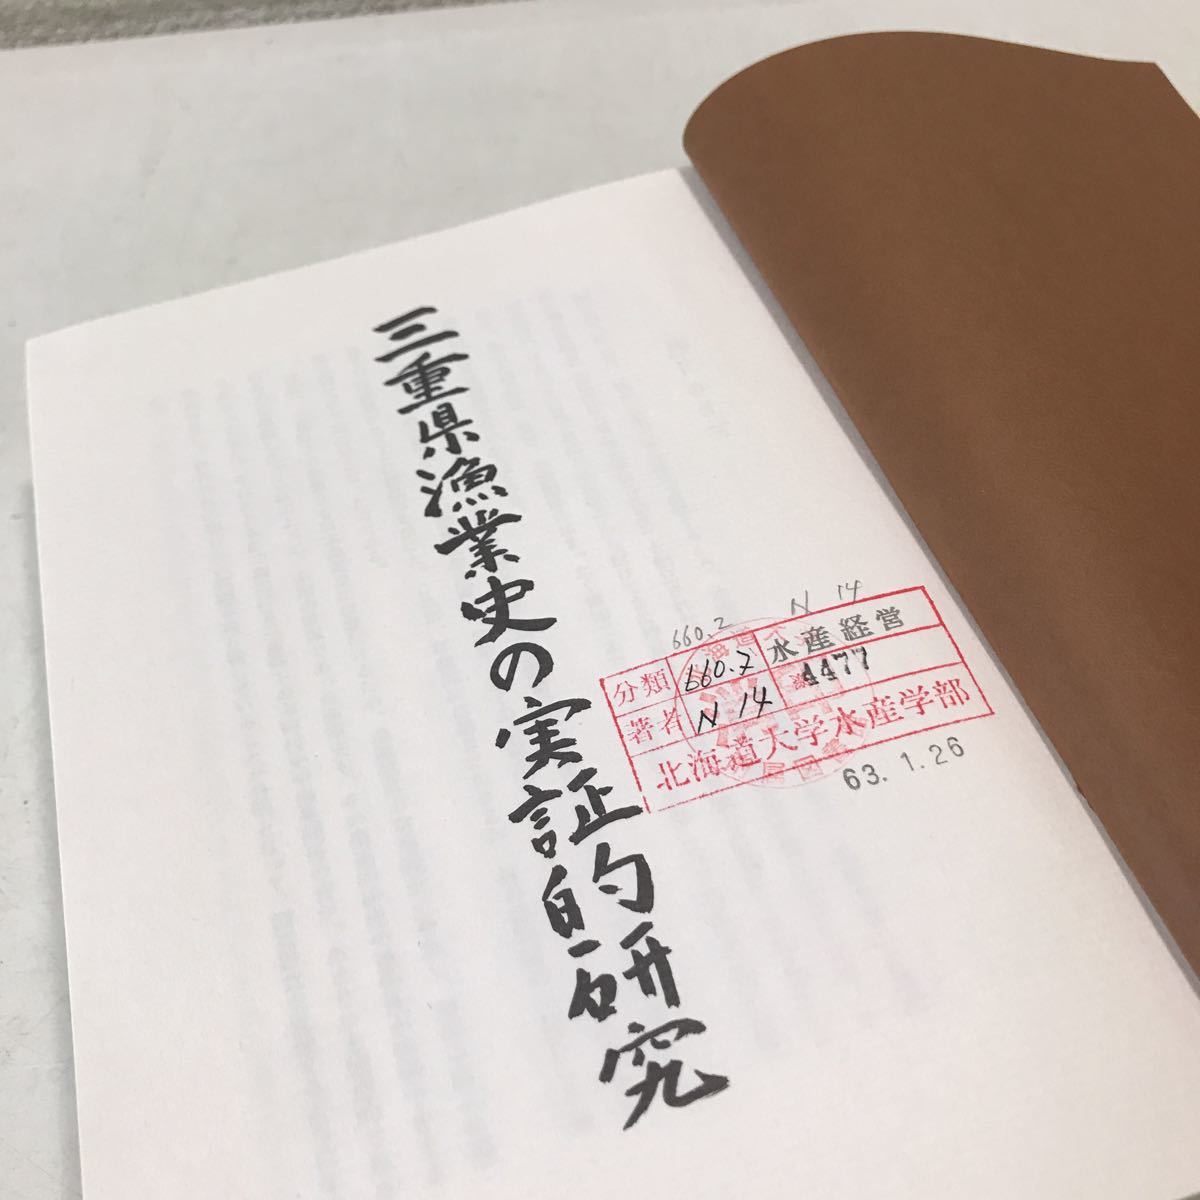 三重県漁業史の実証的研究
660.2 N 14
分類 660.2 水産経営
著者 N 14 4477
北海道大学水産学部
63.1.26